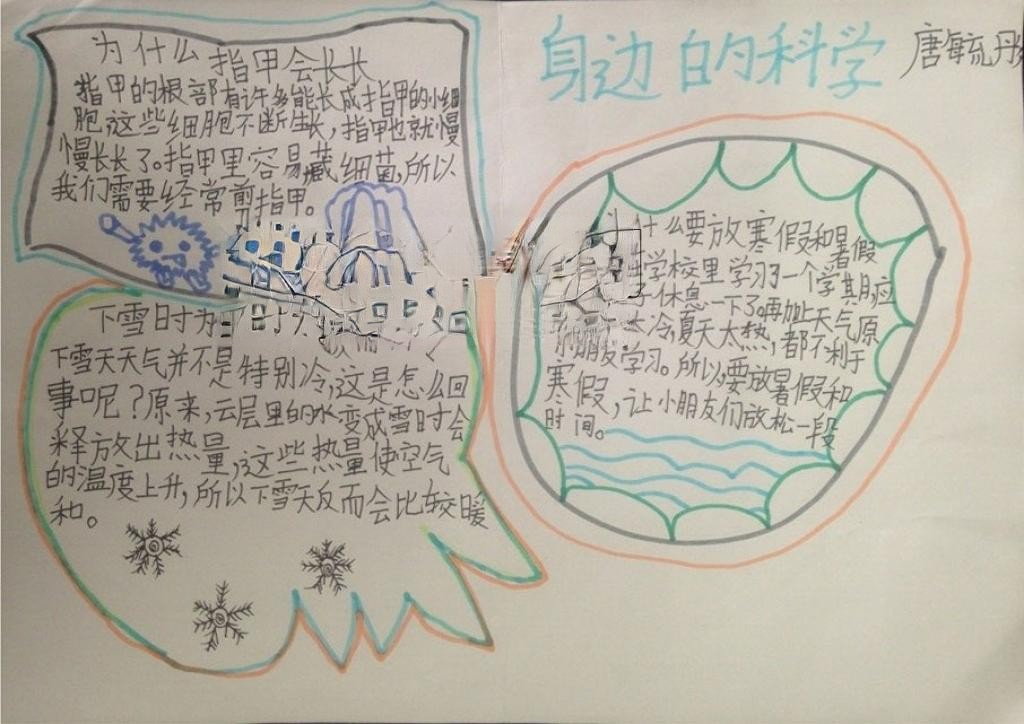 身边的科学
唐毓彤
为什么指甲会长长
指甲的根部有许多能长成指甲的小细
胞,这些细胞不断生长,指甲也就慢
慢长长了。指甲里容易藏细菌,所以
我们需要经常剪指甲。
下雪时为
下雪天天气并不是特别冷,这是怎么回
事呢?原来,云层里的水变成雪时会
释放出热量,这些热量使空气
的温度上升,所以下雪天反而会比较暖
和。
什么要放寒假和暑假
学校里学习了一个学期,应
休息一下了。再加上天气原
太冷,夏天太热,都不利于
朋友学习。所以,要放暑假和
寒假,让小朋友们放松一段
时间。